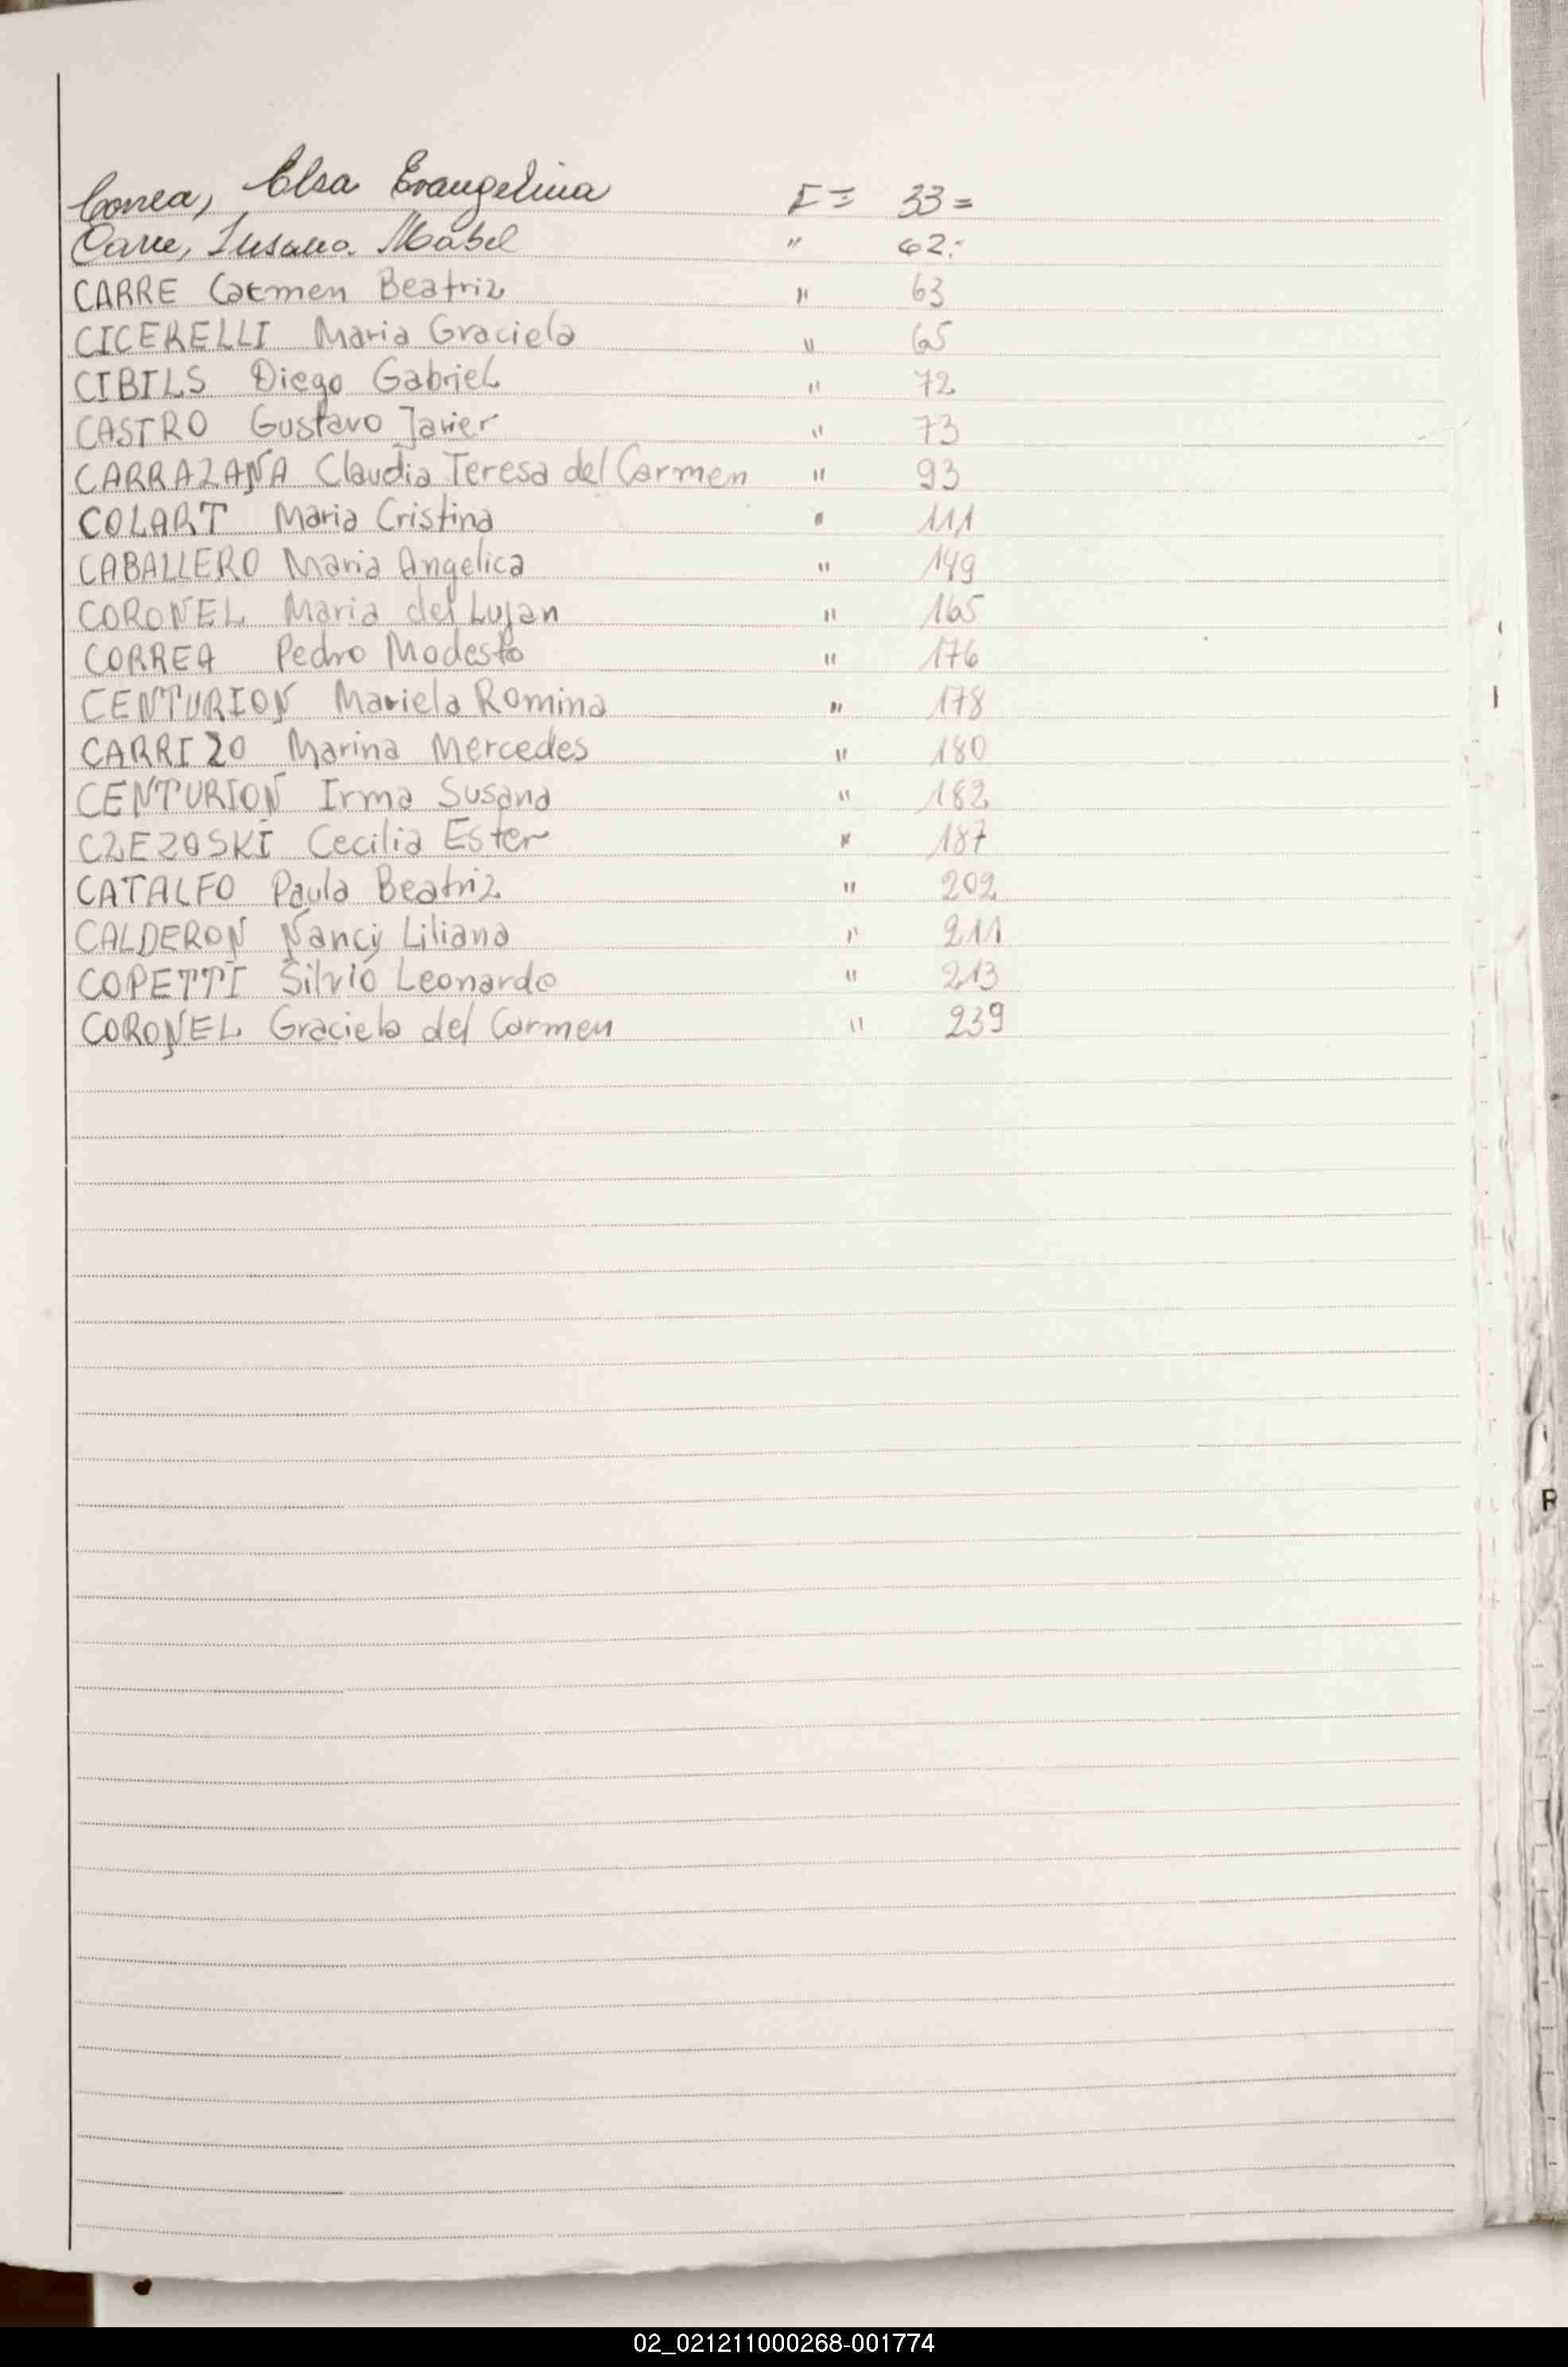 Correa, Elsa Evangelina F= 33=
Carre, Susana Mabel " 62=
CARRE Carmen Beatriz " 63
CICERELLI Maria Graciela " 65
CIBILS Diego Gabriel " 72
CASTRO Gustavo Javier " 73
CARRAZANA Claudia Teresa del Carmen " 93
COLART Maria Cristina " 111
CABALLERO Maria Angelica " 149
CORONEL Maria del Lujan " 165
CORREA Pedro Modesto " 176
CENTURION Mariela Romina " 178
CARRIZO Marina Mercedes " 180
CENTURION Irma Susana " 182
CZEZOSKI Cecilia Ester " 187
CATALFO Paula Beatriz " 202
CALDERON Nancy Liliana " 211
COPETTI Silvio Leonardo " 213
CORONEL Graciela del Carmen " 239
R
02_021211000268-001774